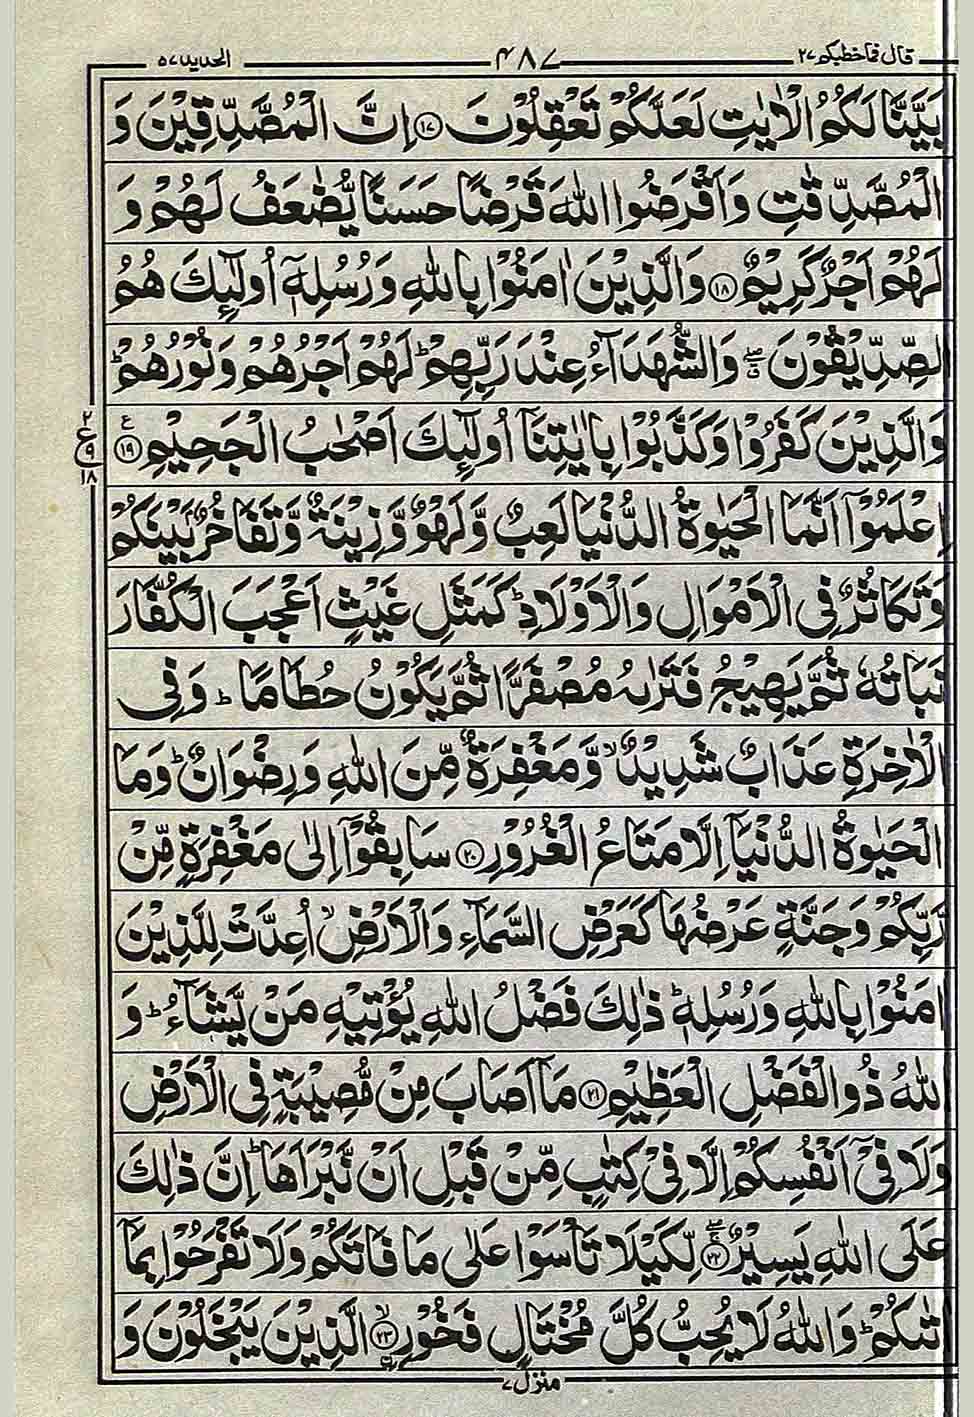 قال فما خطبکم ۲۷ ۴۸۷ الحدید ۵۷
بَيَّنَّا لَكُمُ الْاٰيٰتِ لَعَلَّكُمْ تَعْقِلُوْنَ ﴿۱۷﴾ اِنَّ الْمُصَّدِّقِيْنَ وَ
الْمُصَّدِّقٰتِ وَاَقْرَضُوا اللّٰهَ قَرْضًا حَسَنًا يُّضٰعَفُ لَهُمْ وَ
لَهُمْ اَجْرٌ كَرِيْمٌ ﴿۱۸﴾ وَالَّذِيْنَ اٰمَنُوْا بِاللّٰهِ وَرُسُلِهٖٓ اُولٰٓئِكَ هُمُ
الصِّدِّيْقُوْنَ ۖ وَالشُّهَدَآءُ عِنْدَ رَبِّهِمْ ؕ لَهُمْ اَجْرُهُمْ وَنُوْرُهُمْ ؕ
وَالَّذِيْنَ كَفَرُوْا وَكَذَّبُوْا بِاٰيٰتِنَآ اُولٰٓئِكَ اَصْحٰبُ الْجَحِيْمِ ﴿۱۹﴾
۲ ع ۹ ۱۸
اِعْلَمُوْٓا اَنَّمَا الْحَيٰوةُ الدُّنْيَا لَعِبٌ وَّلَهْوٌ وَّزِيْنَةٌ وَّتَفَاخُرٌۢ بَيْنَكُمْ
وَتَكَاثُرٌ فِى الْاَمْوَالِ وَالْاَوْلَادِ ؕ كَمَثَلِ غَيْثٍ اَعْجَبَ الْكُفَّارَ
نَبَاتُهٗ ثُمَّ يَهِيْجُ فَتَرٰىهُ مُصْفَرًّا ثُمَّ يَكُوْنُ حُطَامًا ؕ وَفِى
الْاٰخِرَةِ عَذَابٌ شَدِيْدٌ ۙ وَّمَغْفِرَةٌ مِّنَ اللّٰهِ وَرِضْوَانٌ ؕ وَمَا
الْحَيٰوةُ الدُّنْيَآ اِلَّا مَتَاعُ الْغُرُوْرِ ﴿۲۰﴾ سَابِقُوْٓا اِلٰى مَغْفِرَةٍ مِّنْ
رَّبِّكُمْ وَجَنَّةٍ عَرْضُهَا كَعَرْضِ السَّمَآءِ وَالْاَرْضِ ۙ اُعِدَّتْ لِلَّذِيْنَ
اٰمَنُوْا بِاللّٰهِ وَرُسُلِهٖ ؕ ذٰلِكَ فَضْلُ اللّٰهِ يُؤْتِيْهِ مَنْ يَّشَآءُ ؕ وَ
اللّٰهُ ذُو الْفَضْلِ الْعَظِيْمِ ﴿۲۱﴾ مَآ اَصَابَ مِنْ مُّصِيْبَةٍ فِى الْاَرْضِ
وَلَا فِىْٓ اَنْفُسِكُمْ اِلَّا فِىْ كِتٰبٍ مِّنْ قَبْلِ اَنْ نَّبْرَاَهَا ؕ اِنَّ ذٰلِكَ
عَلَى اللّٰهِ يَسِيْرٌ ﴿۲۲﴾ لِّكَيْلَا تَاْسَوْا عَلٰى مَا فَاتَكُمْ وَلَا تَفْرَحُوْا بِمَآ
اٰتٰىكُمْ ؕ وَاللّٰهُ لَا يُحِبُّ كُلَّ مُخْتَالٍ فَخُوْرِ ﴿۲۳﴾ ۙ الَّذِيْنَ يَبْخَلُوْنَ وَ
منزل ۷